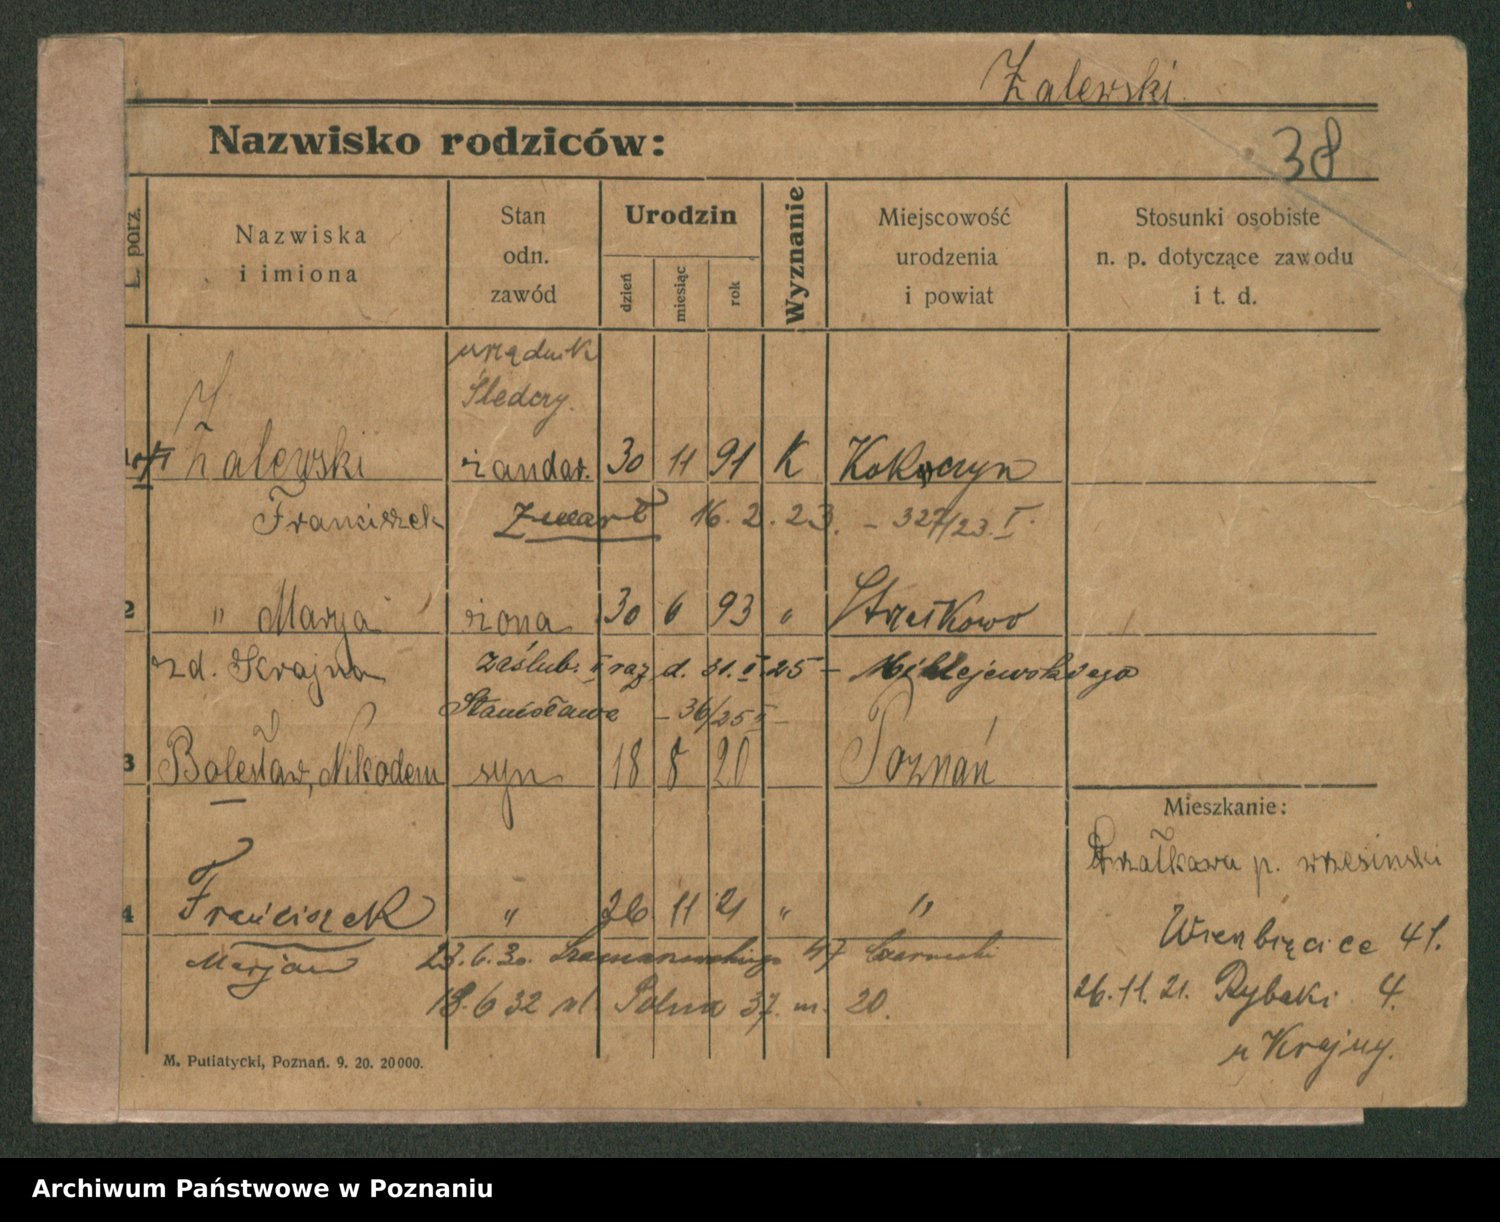 Zalewski.
Nazwisko rodziców:
38
L. porz.
Nazwiska
i imiona
Stan
odn.
zawód
Urodzin
dzień
miesiąc
rok
Wyznanie
Miejscowość
urodzenia
i powiat
Stosunki osobiste
n. p. dotyczące zawodu
i t. d.
urzędnik
Śledczy.
Zalewski żandar. 30 11 91 K
Franciszek zmarł 16. 2. 23. – 327/23. I.
2 " Marya żona 30 6 93 " Strzałkowo
zd. Krajna zaślub. II raz d. 31. I 25 –
Stanisława – 36/25 I –
3 Bolesław, Nikodem syn 18 8 20 Poznań
Mieszkanie:
Strzałkowa p. wrzesinski
4 Franciszek " 26 11 21 " "
Wierzbięcice 41.
Marjan 23. 6. 30. 47 Czarnecki
26. 11. 21. Rybaki 4.
18. 6 32 ul. Polna 37. m. 20.
u Krajny.
M. Putiatycki, Poznań. 9. 20. 20000.
Archiwum Państwowe w Poznaniu